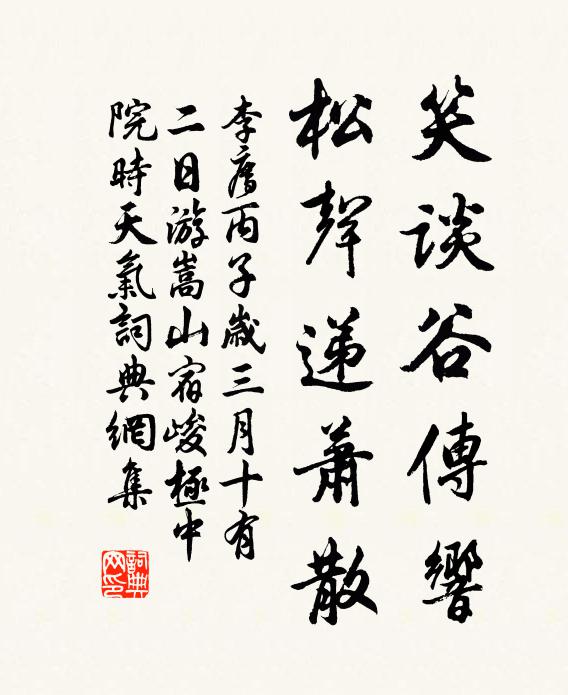 笑談谷傳響
松聲遞蕭散
李廌丙子歲三月十有
二日游嵩山宿峻極中
院時天氣詞典網集
詞典
网印